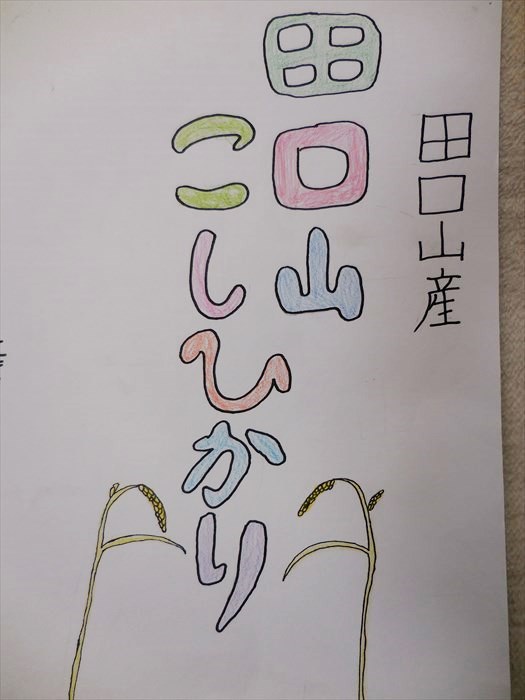 田口山産
田口山
こしひかり